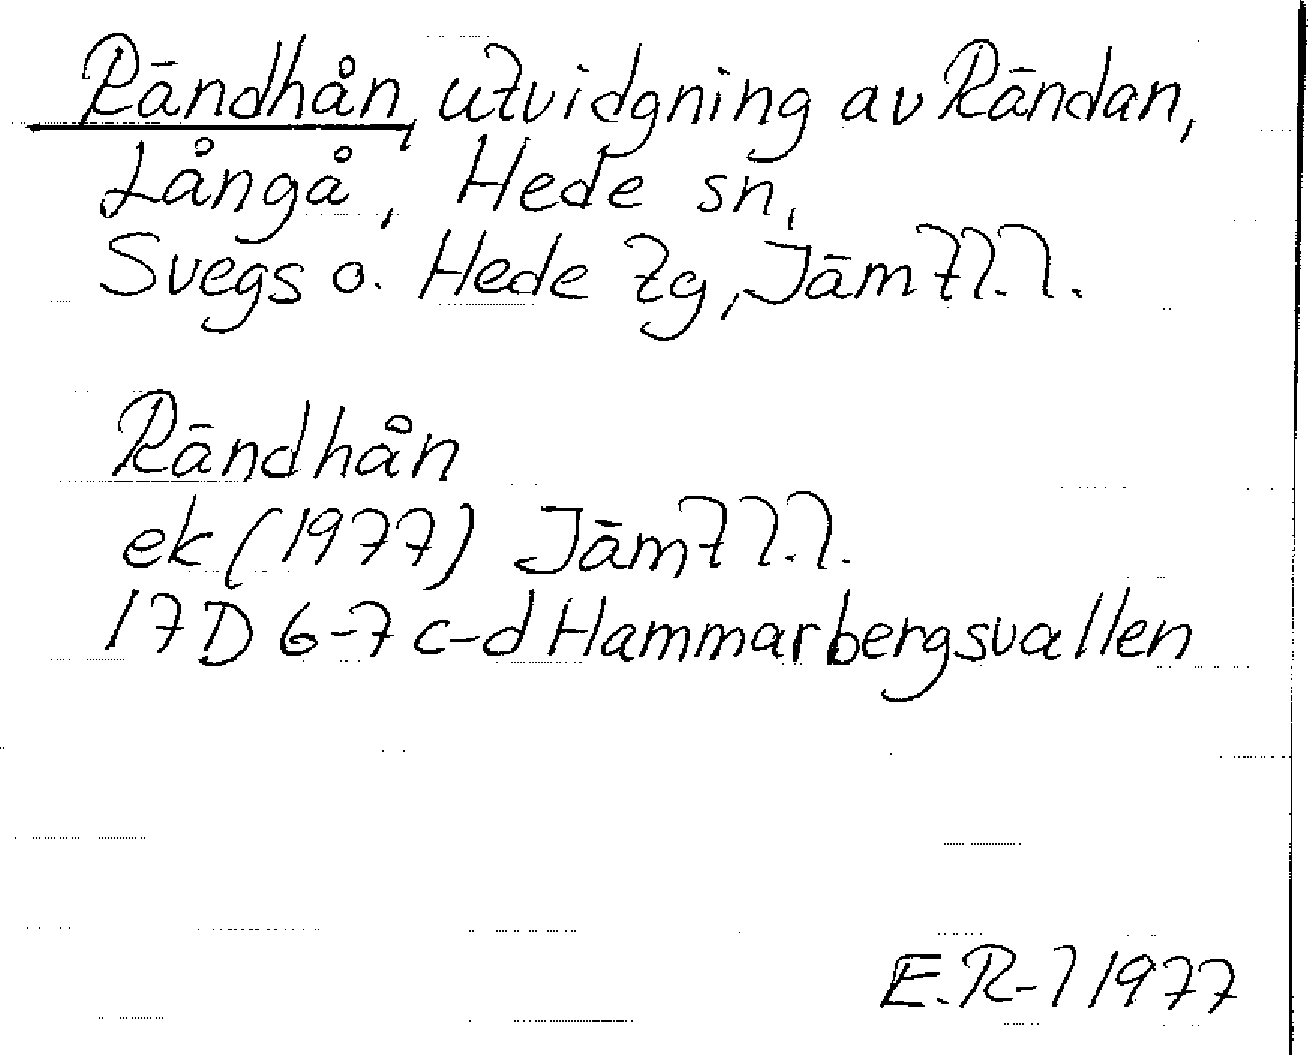 Rändhån, utvidgning av Rändan,
Långå, Hede sn,
Svegs o. Hede tg, Jämtl.l.
Rändhån
ek (1977) Jämtl.l.
17D 6-7 c-d Hammarbergsvallen
E.R-l 1977